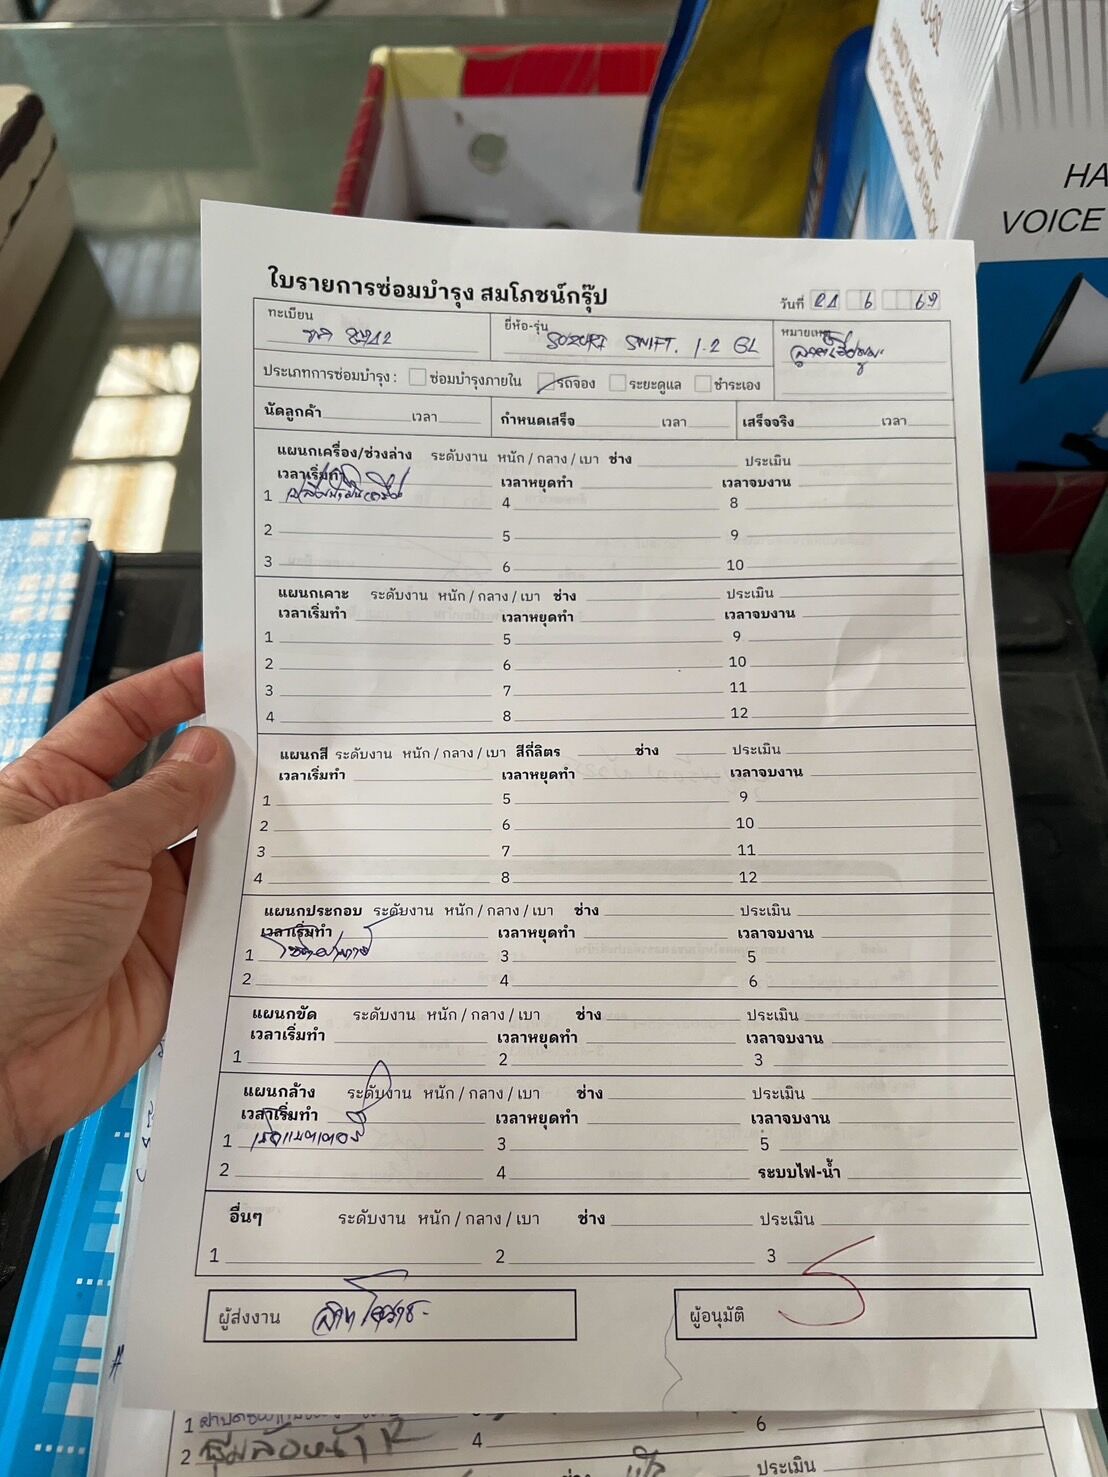 SD-652
HANDY MEGAPHONE
VOICE RECORD/PLAYBACK
HA
VOICE
ใบรายการซ่อมบำรุง สมโภชน์กรุ๊ป
วันที่ 21 6 69
ทะเบียน
ยี่ห้อ-รุ่น SUZUKI SWIFT. 1.2 GL
หมายเหตุ
ประเภทการซ่อมบำรุง : ซ่อมบำรุงภายใน รถจอง ระยะดูแล ชำระเอง
นัดลูกค้า เวลา กำหนดเสร็จ เวลา เสร็จจริง เวลา
แผนกเครื่อง/ช่วงล่าง ระดับงาน หนัก / กลาง / เบา ช่าง ประเมิน
เวลาเริ่มทำ เวลาหยุดทำ เวลาจบงาน
1 เปลี่ยนน้ำมันเครื่อง 4 8
2 5 9
3 6 10
แผนกเคาะ ระดับงาน หนัก / กลาง / เบา ช่าง ประเมิน
เวลาเริ่มทำ เวลาหยุดทำ เวลาจบงาน
1 5 9
2 6 10
3 7 11
4 8 12
แผนกสี ระดับงาน หนัก / กลาง / เบา สีกี่ลิตร ช่าง ประเมิน
เวลาเริ่มทำ เวลาหยุดทำ เวลาจบงาน
1 5 9
2 6 10
3 7 11
4 8 12
แผนกประกอบ ระดับงาน หนัก / กลาง / เบา ช่าง ประเมิน
เวลาเริ่มทำ เวลาหยุดทำ เวลาจบงาน
1 3 5
2 4 6
แผนกขัด ระดับงาน หนัก / กลาง / เบา ช่าง ประเมิน
เวลาเริ่มทำ เวลาหยุดทำ เวลาจบงาน
1 2 3
แผนกล้าง ระดับงาน หนัก / กลาง / เบา ช่าง ประเมิน
เวลาเริ่มทำ เวลาหยุดทำ เวลาจบงาน
1 เช็คแบตเตอรี่ 3 5
2 4 ระบบไฟ-น้ำ
อื่นๆ ระดับงาน หนัก / กลาง / เบา ช่าง ประเมิน
1 2 3
ผู้ส่งงาน
ผู้อนุมัติ
1 6
2 4
ช่าง ประเมิน